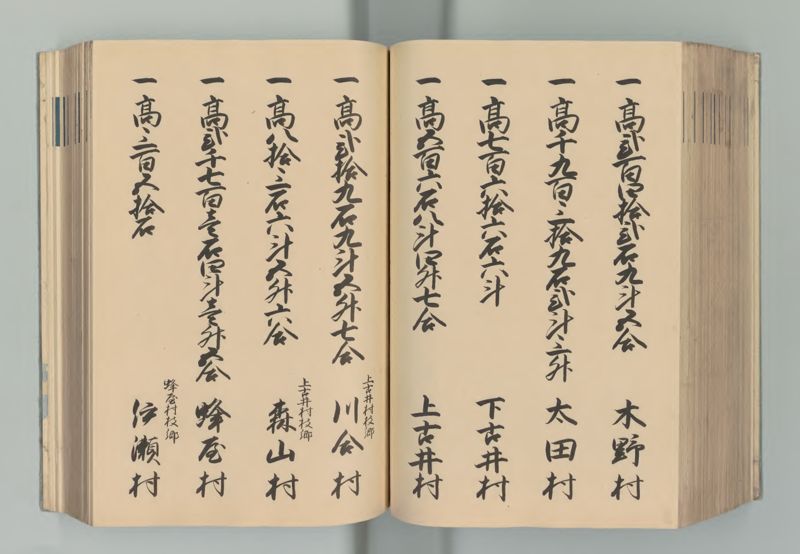 一 高弐百四拾弐石九斗五合 木野村
一 高千九百三拾九石弐斗三升 太田村
一 高七百六拾六石六斗 下古井村
一 高五百六石八斗四升七合 上古井村
上古井村枝郷
一 高弐拾九石九斗五升七合 川合村
上古井村枝郷
一 高八拾三石六斗五升六合 森山村
一 高弐千七百壱石四斗壱升五合 蜂屋村
蜂屋村枝郷
一 高三百五拾石 伊瀬村